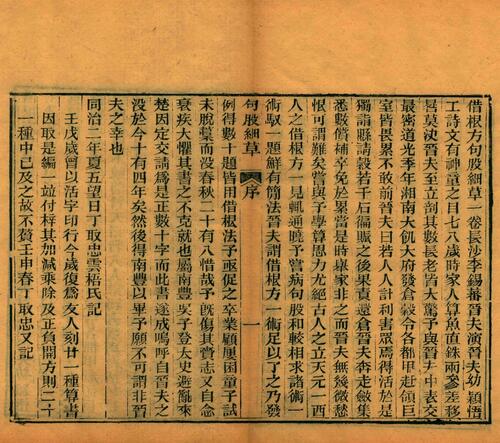 借根方句股細草一卷長沙李錫蕃晉夫演晉夫幼穎悟
工詩文有神童之目七八歲時家人算魚直銖兩參差移
晷莫決晉夫至立剖其數長老皆大驚予與晉夫中表交
最密道光季年湘南大飢大府發倉穀令各都甲赴領巨
室皆畏累不敢前晉夫曰若人人計利害眾焉得活於是
獨詣縣請穀若干石徧賑之後果責還倉穀晉夫奔走斂集
悉數償補卒免於累當是時舉家非之而晉夫無幾微愁
恨可謂難矣嘗與予學算思力尤絕古人之立天元一西
人之借根方一見輒通曉予嘗病句股和較相求諸術一
術馭一題鮮有簡法晉夫謂借根方一術足以了之乃發
句股細草 序 一
例得數十題皆用借根法予亟促之卒業顧屢困童子試
未脫藁而没春秋二十有八惜哉予既傷其賫志又自念
衰疾大懼其書之不克就也屬南豐吳子登太史避亂來
楚因定交請爲是正數十字而此書遂成嗚呼自晉夫之
没於今十有四年矣然後得南豐以畢予願不可謂非晉
夫之幸也
同治二年夏五望日丁取忠雲梧氏記
壬戌歲曾以活字印行今歲復爲友人刻廿一種算書
因取是編一竝付梓其加減乘除及正負開方則二十
一種中已及之故不贅壬申春丁取忠又記